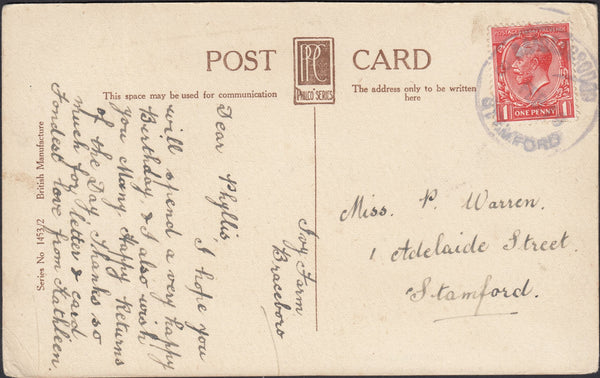 POST CARD
PPC
PHILCO SERIES
This space may be used for communication
The address only to be written
here
Ivy Farm
Braceboro
Dear Phyllis,
I hope you
will spend a very happy
Birthday, & I also wish
you Many Happy Returns
of the Day. Thanks so
much for letter & card
Fondest love from Kathleen.
Series No 1453/2 British Manufacture
ONE PENNY
1 1
STAMFORD
Miss. P. Warren.
1 Adelaide Street.
Stamford.